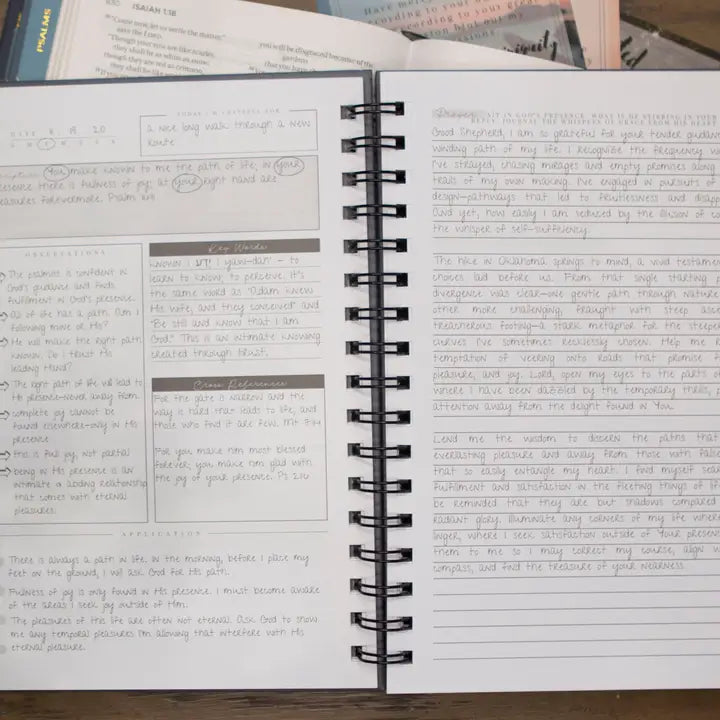 PSALMS
ISAIAH 1:18
"Come now, let us settle the matter,"
says the LORD.
"Though your sins are like scarlet,
they shall be as white as snow;
though they are red as crimson,
they shall be like
you will be disgraced because of the
gardens
that you have
Have mercy
according to your
according to your great
blot out my
iniquity
TODAY I'M GRATEFUL FOR
a nice long walk through a new
route
DATE 8. 19. 20
S M T W T F S
You make known to me the path of life; in Your
presence there is fullness of joy; at Your right hand are
pleasures forevermore. Psalm 16:11
OBSERVATIONS
The psalmist is confident in
God's guidance and finds
fulfillment in God's presence.
All of life has a path. Am I
following mine or His?
He will make the right path
known. Do I trust His
leading hand?
The right path of life will lead to
His presence—never away from.
complete joy cannot be
found elsewhere—only in His
presence
this is full joy, not partial
being in His presence is an
intimate & abiding relationship
that comes with eternal
pleasures.
Key Words
known | ידע | yaw-dah' - to
learn to know, to perceive. it's
the same word as "Adam knew
His wife, and they conceived" and
"Be still and know that I am
God." This is an intimate knowing
created through trust.
Cross References
For the gate is narrow and the
way is hard that leads to life, and
those who find it are few. Mt 7:14
For you make him most blessed
forever; you make him glad with
the joy of your presence. Ps 21:6
APPLICATION
There is always a path in life. In the morning, before I place my
feet on the ground, I will ask God for His path.
Fullness of joy is only found in His presence. I must become aware
of the areas I seek joy outside of Him.
The pleasures of this life are often not eternal. Ask God to show
me any temporal pleasures I'm allowing that interfere with His
eternal pleasure.
Prayer
SIT IN GOD'S PRESENCE. WHAT IS HE STIRRING IN YOUR
JOURNAL THE WHISPERS OF GRACE FROM HIS HEAR
Good Shepherd, I am so grateful for your tender guidanc
winding path of my life. I recognize the frequency w
I've strayed, chasing mirages and empty promises along
trails of my own making. I've engaged in pursuits of
design—pathways that led to fruitlessness and disapp
And yet, how easily I am seduced by the illusion of co
the whisper of self-sufficiency.
The hike in Oklahoma springs to mind, a vivid testamen
choices laid before us. From that single starting
divergence was clear—one gentle path through nature
other more challenging, fraught with steep asce
treacherous footing—a stark metaphor for the steepe
curves I've sometimes recklessly chosen. Help me r
temptation of veering onto roads that promise f
pleasure, and joy. Lord, open my eyes to the parts of
where I have been dazzled by the temporary thrills,
attention away from the delight found in You.
Lend me the wisdom to discern the paths that
everlasting pleasure and away from those with false
that so easily entangle my heart. I find myself sear
fulfillment and satisfaction in the fleeting things of life
be reminded that they are but shadows compared
radiant glory. Illuminate any corners of my life where
linger, where I seek satisfaction outside of Your presen
them to me so I may correct my course, align w
compass, and find the treasure of your nearness.